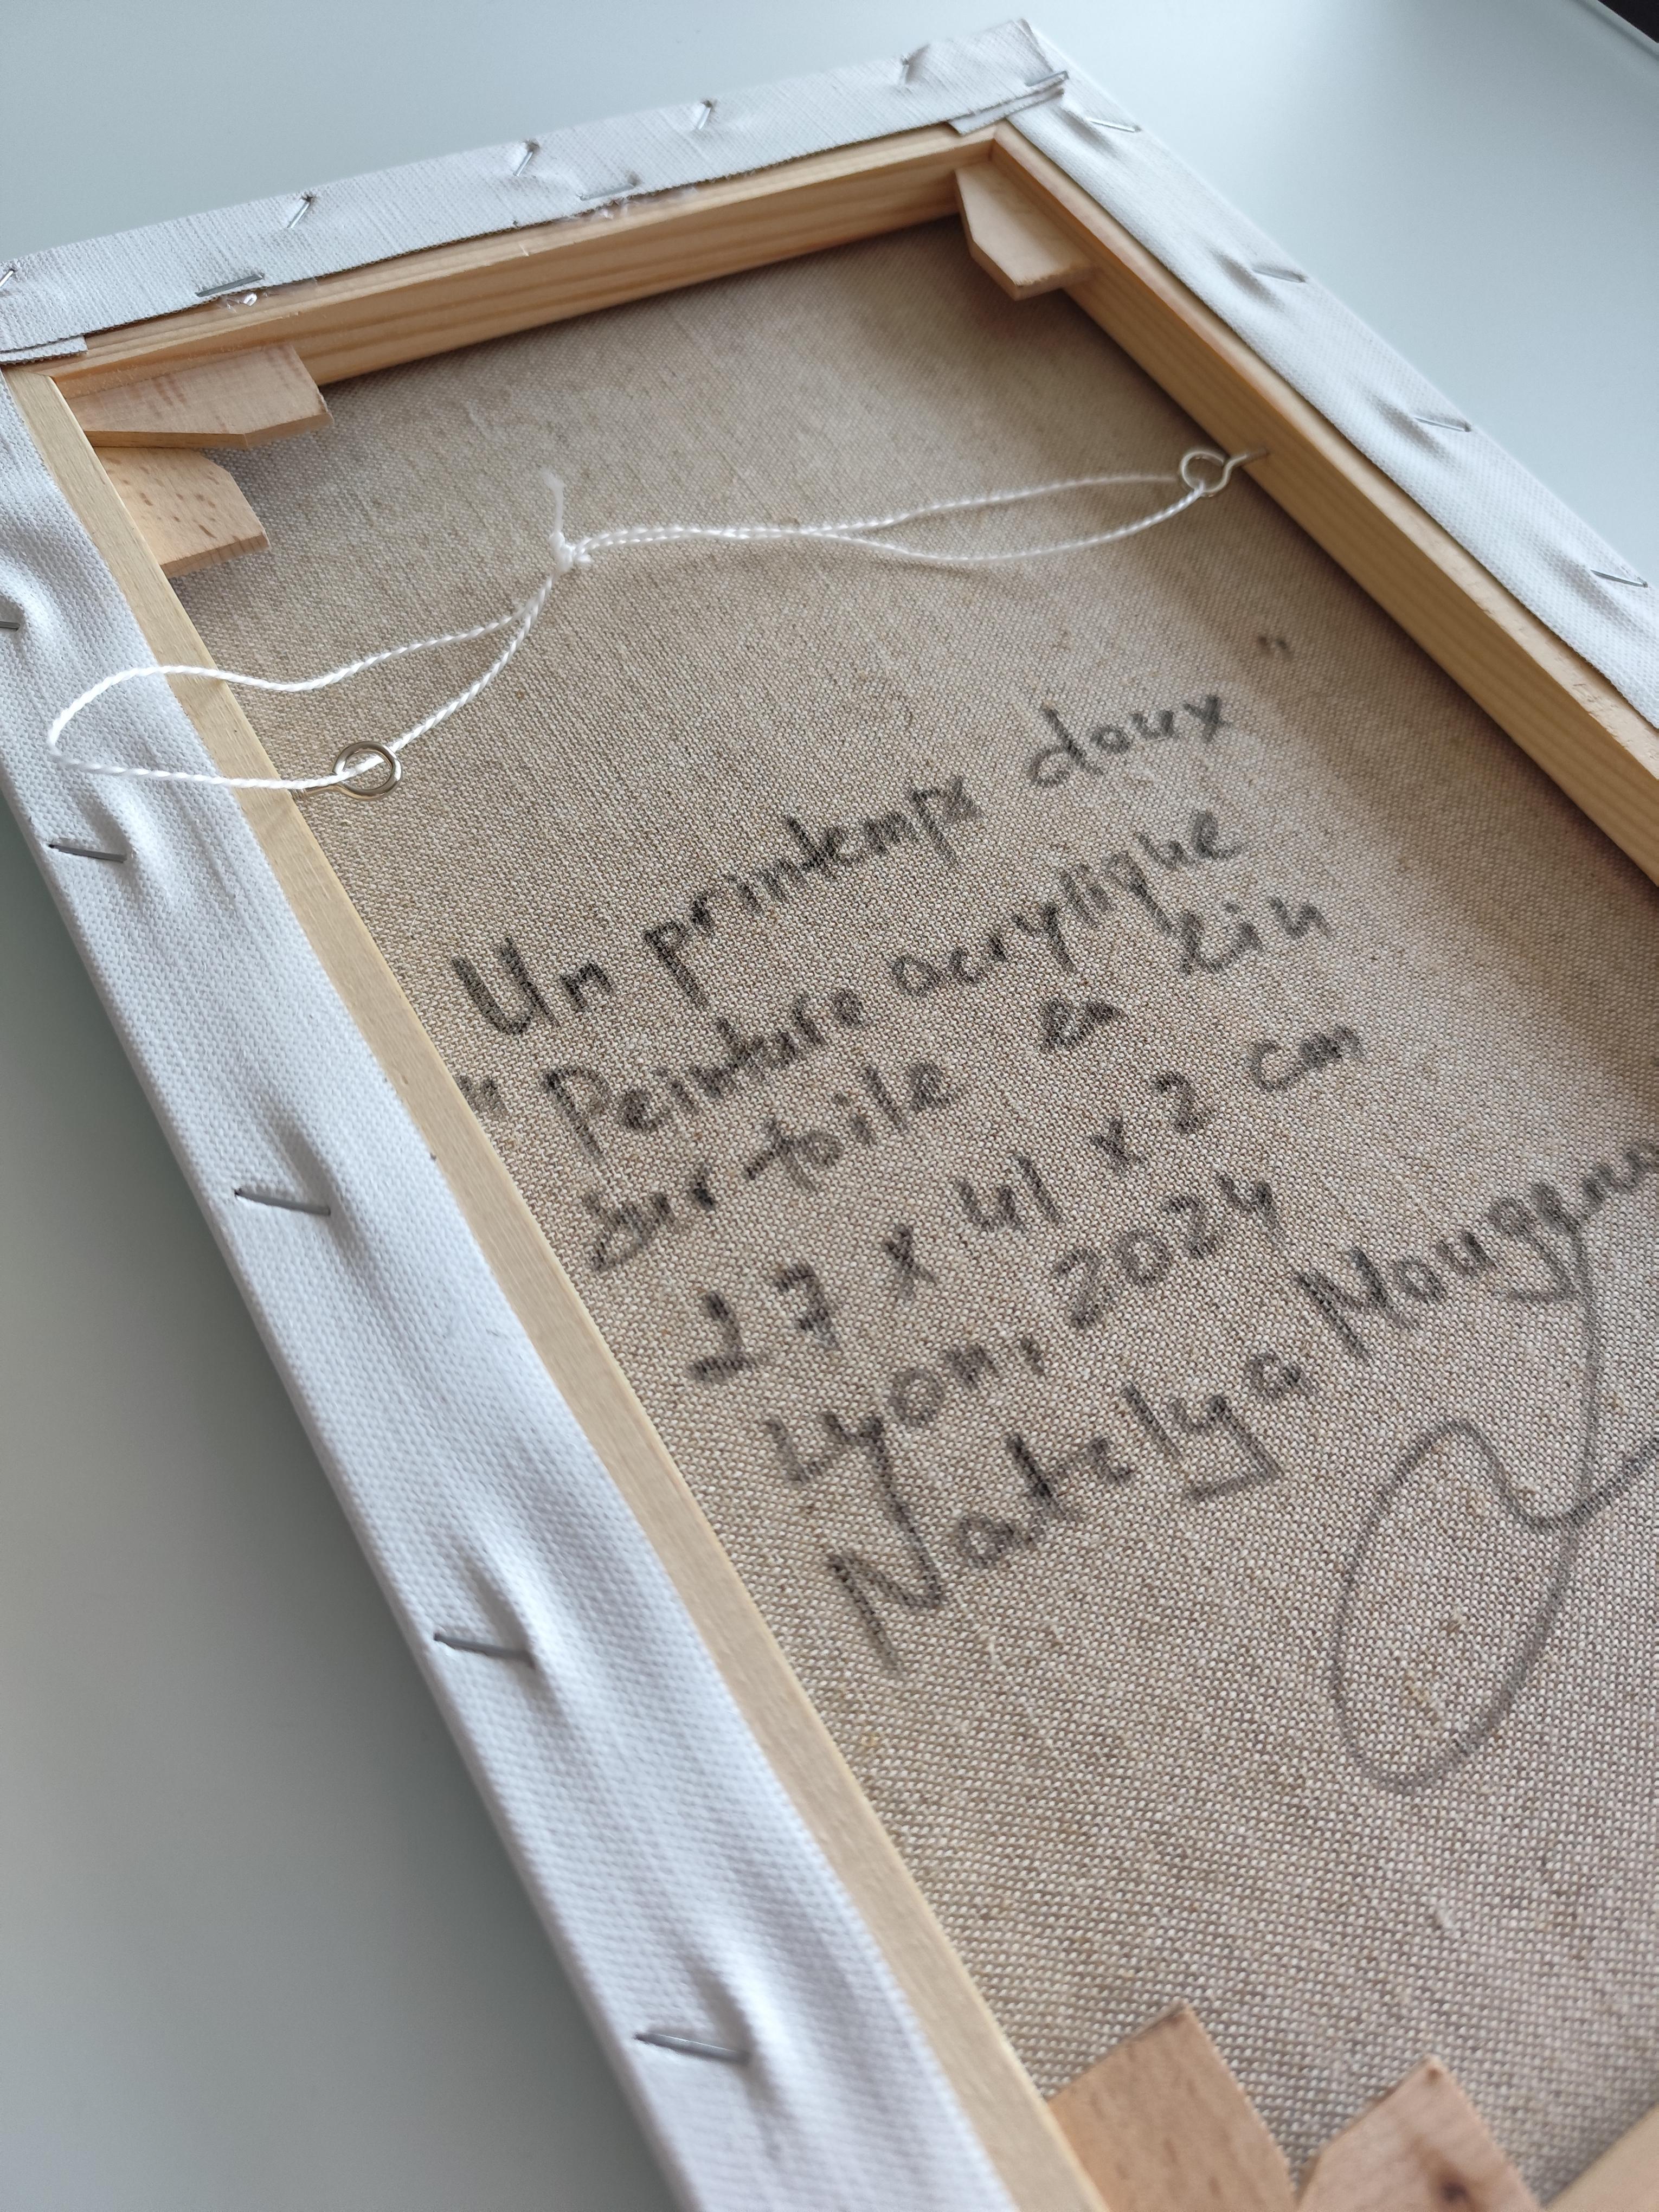 Un printemps doux"
"Peinture acrylique
sur toile en lin
27 x 41 x 2 cm
Lyon, 2024
Natalya